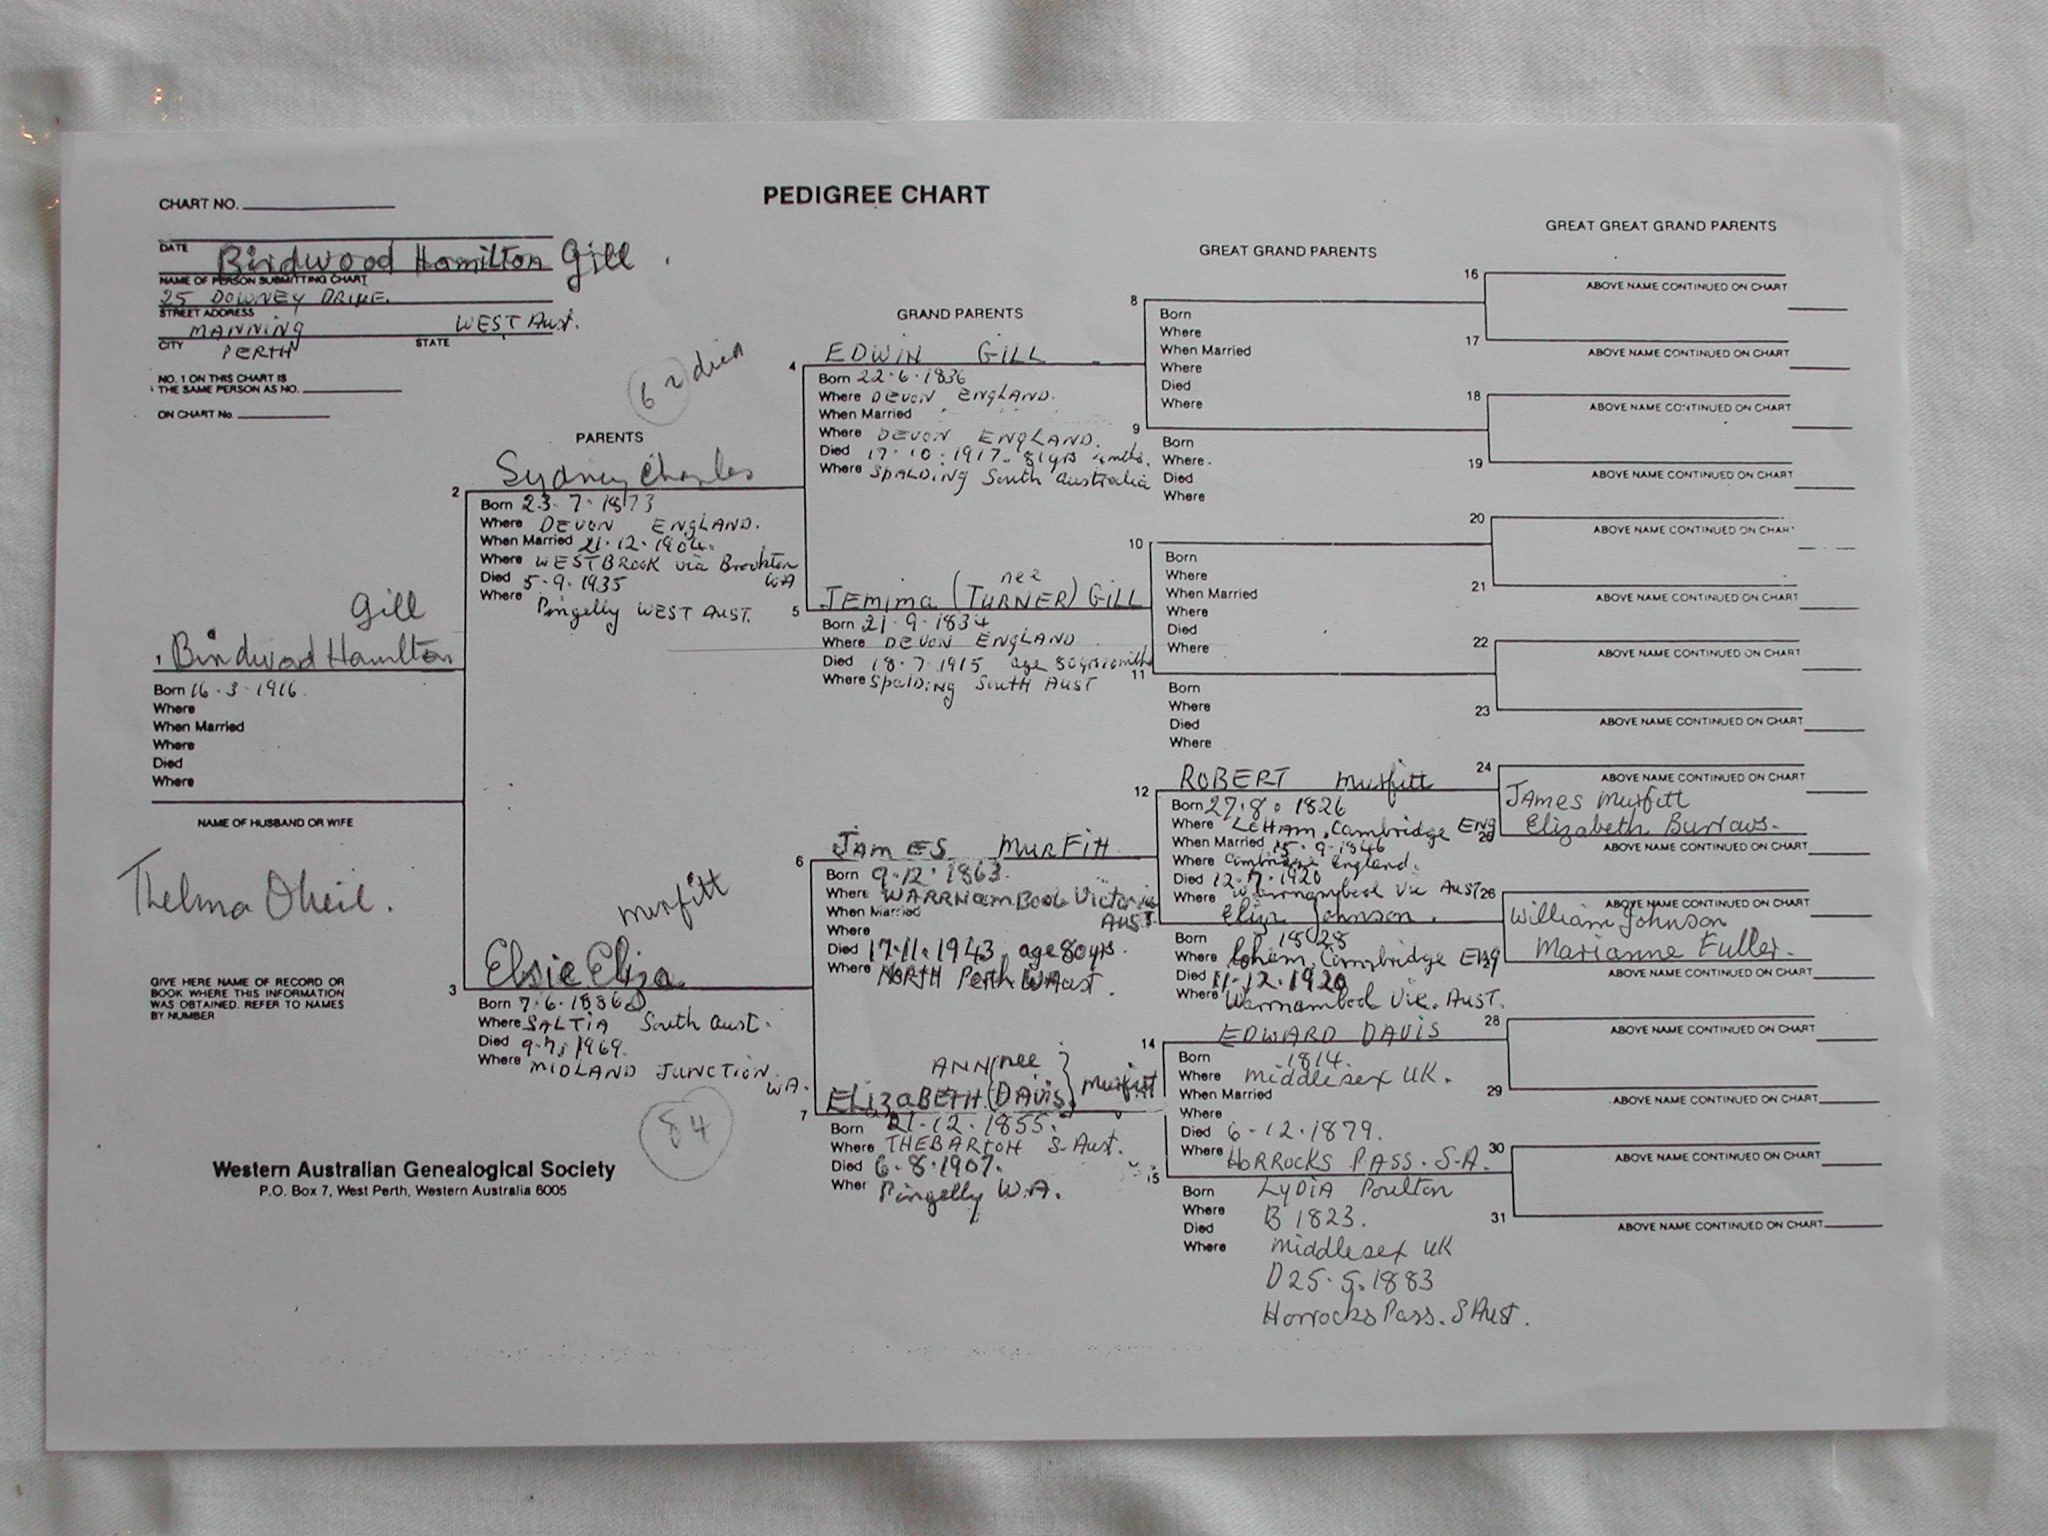 PEDIGREE CHART
CHART NO.
DATE
Birdwood Hamilton Gill.
NAME OF PERSON SUBMITTING CHART
25 DOWNEY DRIVE.
STREET ADDRESS
MANNING WEST Aust.
CITY PERTH STATE
NO. 1 ON THIS CHART IS
THE SAME PERSON AS NO.
ON CHART No.
Gill
1 Birdwood Hamilton
Born 16.3.1916.
Where
When Married
Where
Died
Where
NAME OF HUSBAND OR WIFE
Thelma
GIVE HERE NAME OF RECORD OR
BOOK WHERE THIS INFORMATION
WAS OBTAINED. REFER TO NAMES
BY NUMBER
Western Australian Genealogical Society
P.O. Box 7, West Perth, Western Australia 6005
PARENTS
62 died
Sydney Charles
2
Born 23.7.1873
Where DEVON ENGLAND.
When Married 21.12.1904.
Where WESTBROOK via Brookton
WA
Died 5.9.1935
Where Pingelly WEST AUST.
murfitt
Elsie Eliza
3
Born 7.6.1886
Where SALTIA South Aust.
Died 9.7.1969.
Where MIDLAND JUNCTION.
WA.
84
GRAND PARENTS
4 EDWIN GILL
Born 22.6.1836
Where DEVON ENGLAND.
When Married
Where DEVON ENGLAND.
Died 17.10.1917. 81yrs
Where SPALDING South Australia
nee
5 JEMIMA (TURNER) GILL
Born 21.9.1834
Where DEVON ENGLAND
Died 18.7.1915 age 80yrs
Where SPALDING SOUTH AUST
6 JAMES MURFITT
Born 9.12.1863.
Where WARRNAMBOOL Victoria
AUST
When Married
Where
Died 17.11.1943. age 80yrs.
Where NORTH Perth W Aust.
ANN (nee
7 ELIZABETH (DAVIS) murfitt
Born 21.12.1855.
Where THEBARTON S. Aust.
Died 6.8.1907.
Wher Pingelly W.A.
GREAT GRAND PARENTS
8
Born
Where
When Married
Where
Died
Where
9
Born
Where
Died
Where
10
Born
Where
When Married
Where
Died
Where
11
Born
Where
Died
Where
12 ROBERT murfitt
Born 27.8.1826
Where Cambridge ENG
When Married 15.9.1846
Where Cambridge England.
Died
Where Warrnambool Vic AUST
Eliza Johnson.
Born 1828
Where Cambridge Eng
Died 11.12.1920
Where Warrnambool Vic. AUST.
14 EDWARD DAVIS
Born 1814.
Where Middlesex UK.
When Married
Where
Died 6.12.1879.
Where HORROCKS PASS. S.A.
15
Born LYDIA Poulton
Where B 1823.
Died
Where Middlesex UK
D 25.5.1883
Horrocks Pass. S Aust.
GREAT GREAT GRAND PARENTS
16
ABOVE NAME CONTINUED ON CHART
17
ABOVE NAME CONTINUED ON CHART
18
ABOVE NAME CONTINUED ON CHART
19
ABOVE NAME CONTINUED ON CHART
20
ABOVE NAME CONTINUED ON CHART
21
ABOVE NAME CONTINUED ON CHART
22
ABOVE NAME CONTINUED ON CHART
23
ABOVE NAME CONTINUED ON CHART
24
ABOVE NAME CONTINUED ON CHART
JAMES murfitt
Elizabeth Burrows.
ABOVE NAME CONTINUED ON CHART
26
ABOVE NAME CONTINUED ON CHART
William Johnson
Marianne Fuller.
ABOVE NAME CONTINUED ON CHART
28
ABOVE NAME CONTINUED ON CHART
29
ABOVE NAME CONTINUED ON CHART
30
ABOVE NAME CONTINUED ON CHART
31
ABOVE NAME CONTINUED ON CHART